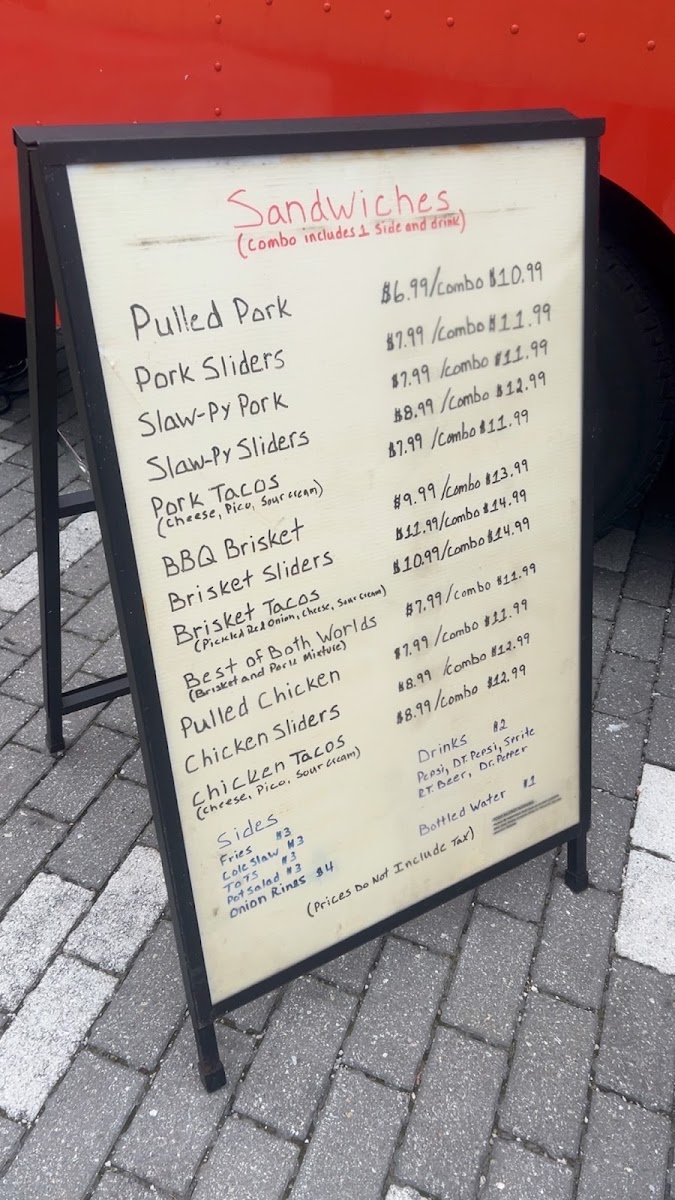 Sandwiches
(Combo includes 1 Side and drink)
Pulled Pork $6.99/Combo $10.99
Pork Sliders $7.99 /Combo $11.99
Slaw-Py Pork $7.99 /Combo $11.99
Slaw-Py Sliders $8.99 /Combo $12.99
Pork Tacos $7.99 /Combo $11.99
(Cheese, Pico, Sour Cream)
BBQ Brisket $9.99 /Combo $13.99
Brisket Sliders $11.99/Combo $14.99
Brisket Tacos $10.99/Combo $14.99
(Pickled Red Onion, Cheese, Sour Cream)
Best of Both Worlds $7.99 /Combo $11.99
(Brisket and Pork Mixture)
Pulled Chicken $7.99 /Combo $11.99
Chicken Sliders $8.99 /Combo $12.99
Chicken Tacos $8.99/Combo $12.99
(Cheese, Pico, Sour Cream)
Sides
Fries $3
Cole Slaw $3
Tots $3
Pot Salad $3
Onion Rings $4
Drinks $2
Pepsi, DT. Pepsi, Sprite
RT. Beer, Dr. Pepper
Bottled Water $1
(Prices Do Not Include Tax)